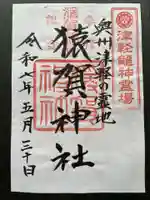 奥州津軽の霊地
津軽龍神霊場
猿賀神社
令和七年五月三十日